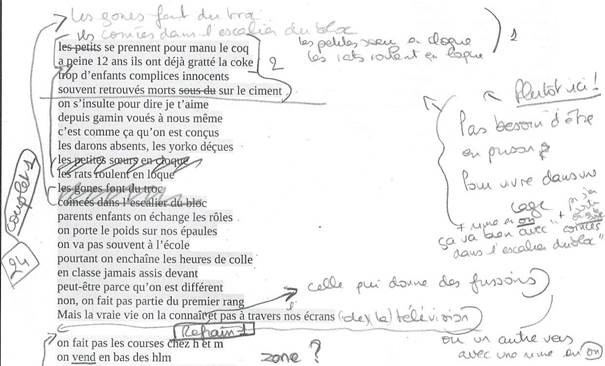 les gones font du troc
coincés dans l'escalier du bloc
les petites sœurs en cloque
les rats roulent en loque
1
les petits se prennent pour manu le coq
a peine 12 ans ils ont déjà gratté la coke
2
trop d'enfants complices innocents
souvent retrouvés morts sous du sur le ciment
on s'insulte pour dire je t'aime
depuis gamin voués à nous même
c'est comme ça qu'on est conçus
les darons absents, les yorko déçues
les petites sœurs en cloque
les rats roulent en loque
les gones font du troc
coincés dans l'escalier du bloc
parents enfants on échange les rôles
on porte le poids sur nos épaules
on va pas souvent à l'école
pourtant on enchaîne les heures de colle
en classe jamais assis devant
peut-être parce qu'on est différent
non, on fait pas partie du premier rang
Mais la vraie vie on la connaît et pas à travers nos écrans (de) (la) télévision
celle qui donne des frissons
couplet 1
24
Plutôt ici !
Pas besoin d'être
en prison
Pour vivre dans une
cage
+ rime en on
ça va bien avec "coincés
dans l'escalier du bloc"
ou un autre vers
avec une rime en on
Refrain 1
on fait pas les courses chez h et m
on vend en bas des hlm
zone ?